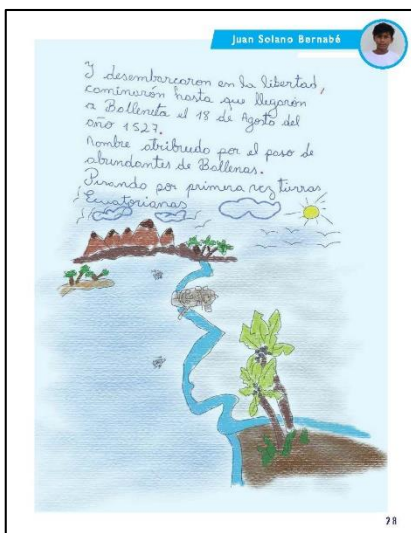 Juan Solano Bernabé
Y desembarcaron en la libertad,
caminarón hasta que llegarón
a Balleneta el 18 de Agosto del
año 1527.
Nombre atribuido por el paso de
abundantes de Ballenas.
Pisando por primera vez tierras
Ecuatorianas
28